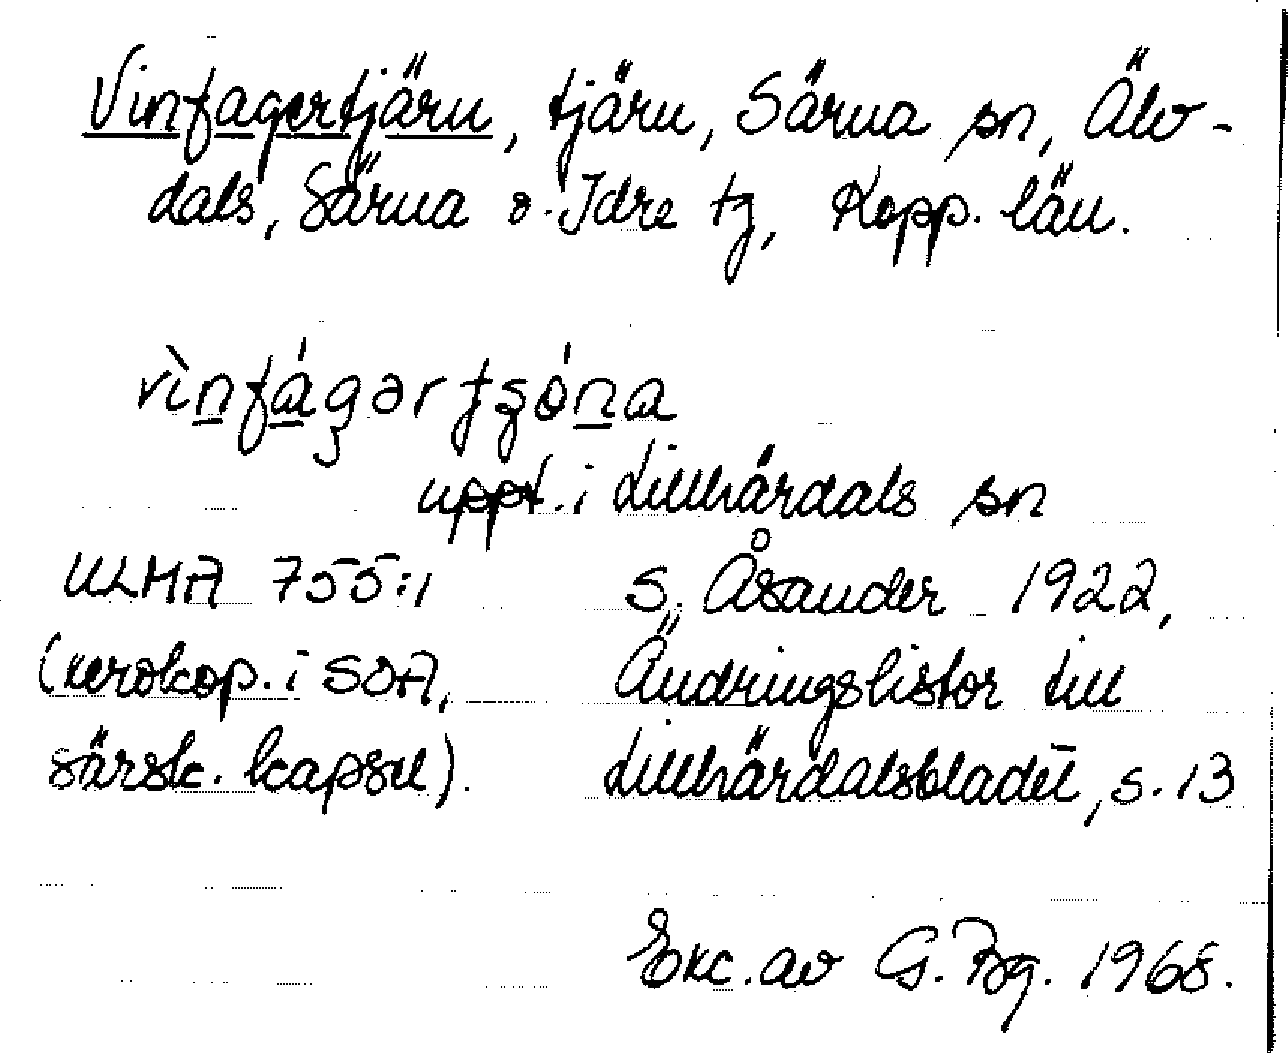 Vinfagertjärn, tjärn, Särna sn, Älv-
dals, Särna o. Idre tg, Kopp. län.
vìnfágərtʂóna
uppt. i Lillhärdals sn
ULMA 755:1 S. Åsander 1922,
(xerokop. i SOA, Ändringslistor till
särsk. kapsel). Lillhärdalsbladet, s. 13
Exc. av G. Bg. 1968.